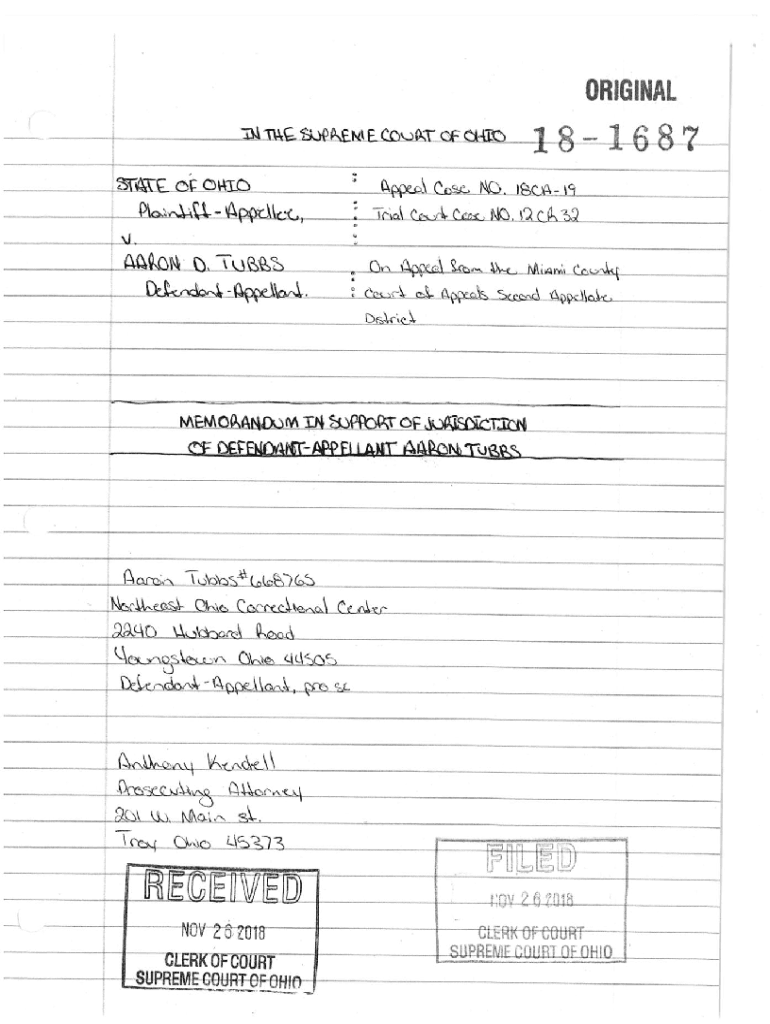 ORIGINAL
IN THE SUPREME COURT OF OHIO 18-1687
STATE OF OHIO : Appeal Case NO. 18CA-19
Plaintiff-Appellee, : Trial Court Case NO. 12CR32
v. :
AARON D. TUBBS : On Appeal from the Miami County
Defendant-Appellant. : Court of Appeals Second Appellate
District
MEMORANDUM IN SUPPORT OF JURISDICTION
OF DEFENDANT-APPELLANT AARON TUBBS
Aaron Tubbs #668765
Northeast Ohio Correctional Center
2240 Hubbard Road
Youngstown Ohio 44505
Defendant-Appellant, pro se
Anthony Kendell
Prosecuting Attorney
201 W. Main st.
Troy Ohio 45373
RECEIVED
NOV 26 2018
CLERK OF COURT
SUPREME COURT OF OHIO
FILED
NOV 26 2018
CLERK OF COURT
SUPREME COURT OF OHIO